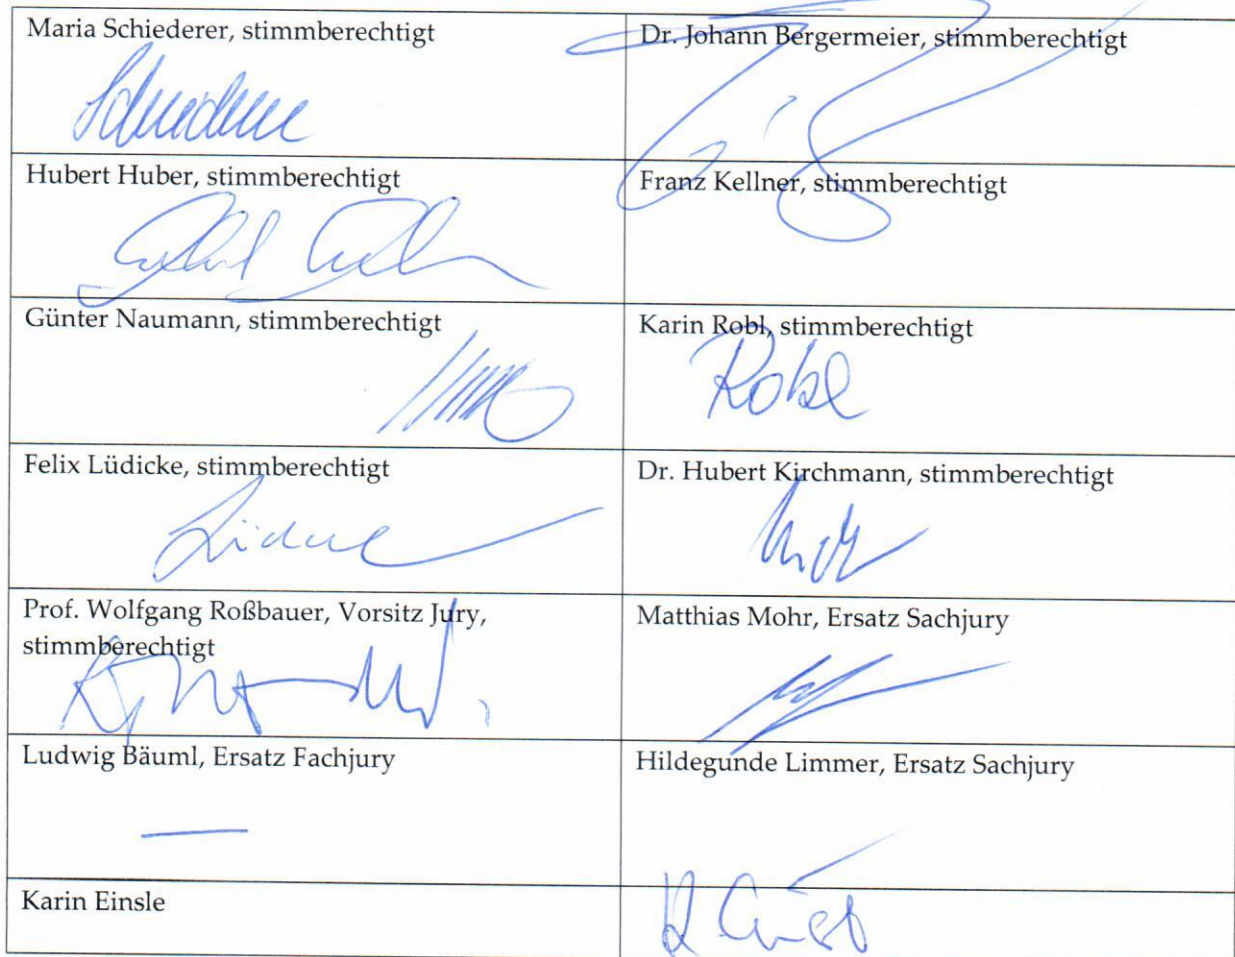 Maria Schiederer, stimmberechtigt
Dr. Johann Bergermeier, stimmberechtigt
Hubert Huber, stimmberechtigt
Franz Kellner, stimmberechtigt
Günter Naumann, stimmberechtigt
Karin Robl, stimmberechtigt
Robl
Felix Lüdicke, stimmberechtigt
Dr. Hubert Kirchmann, stimmberechtigt
Prof. Wolfgang Roßbauer, Vorsitz Jury,
stimmberechtigt
Matthias Mohr, Ersatz Sachjury
Ludwig Bäuml, Ersatz Fachjury
Hildegunde Limmer, Ersatz Sachjury
Karin Einsle